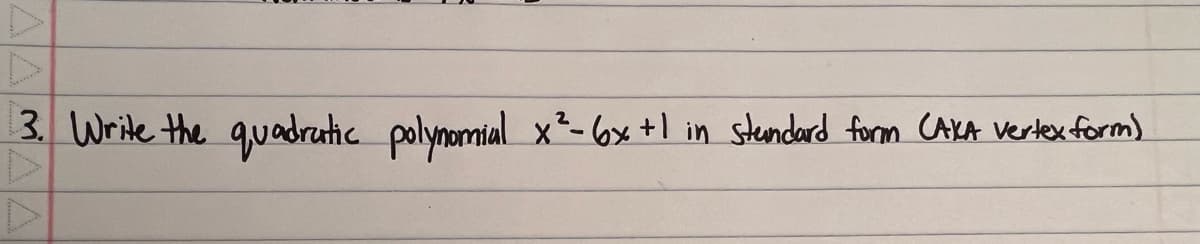 3. Write the quadratic polynomial x²-6x+1 in standard form (AKA vertex form)